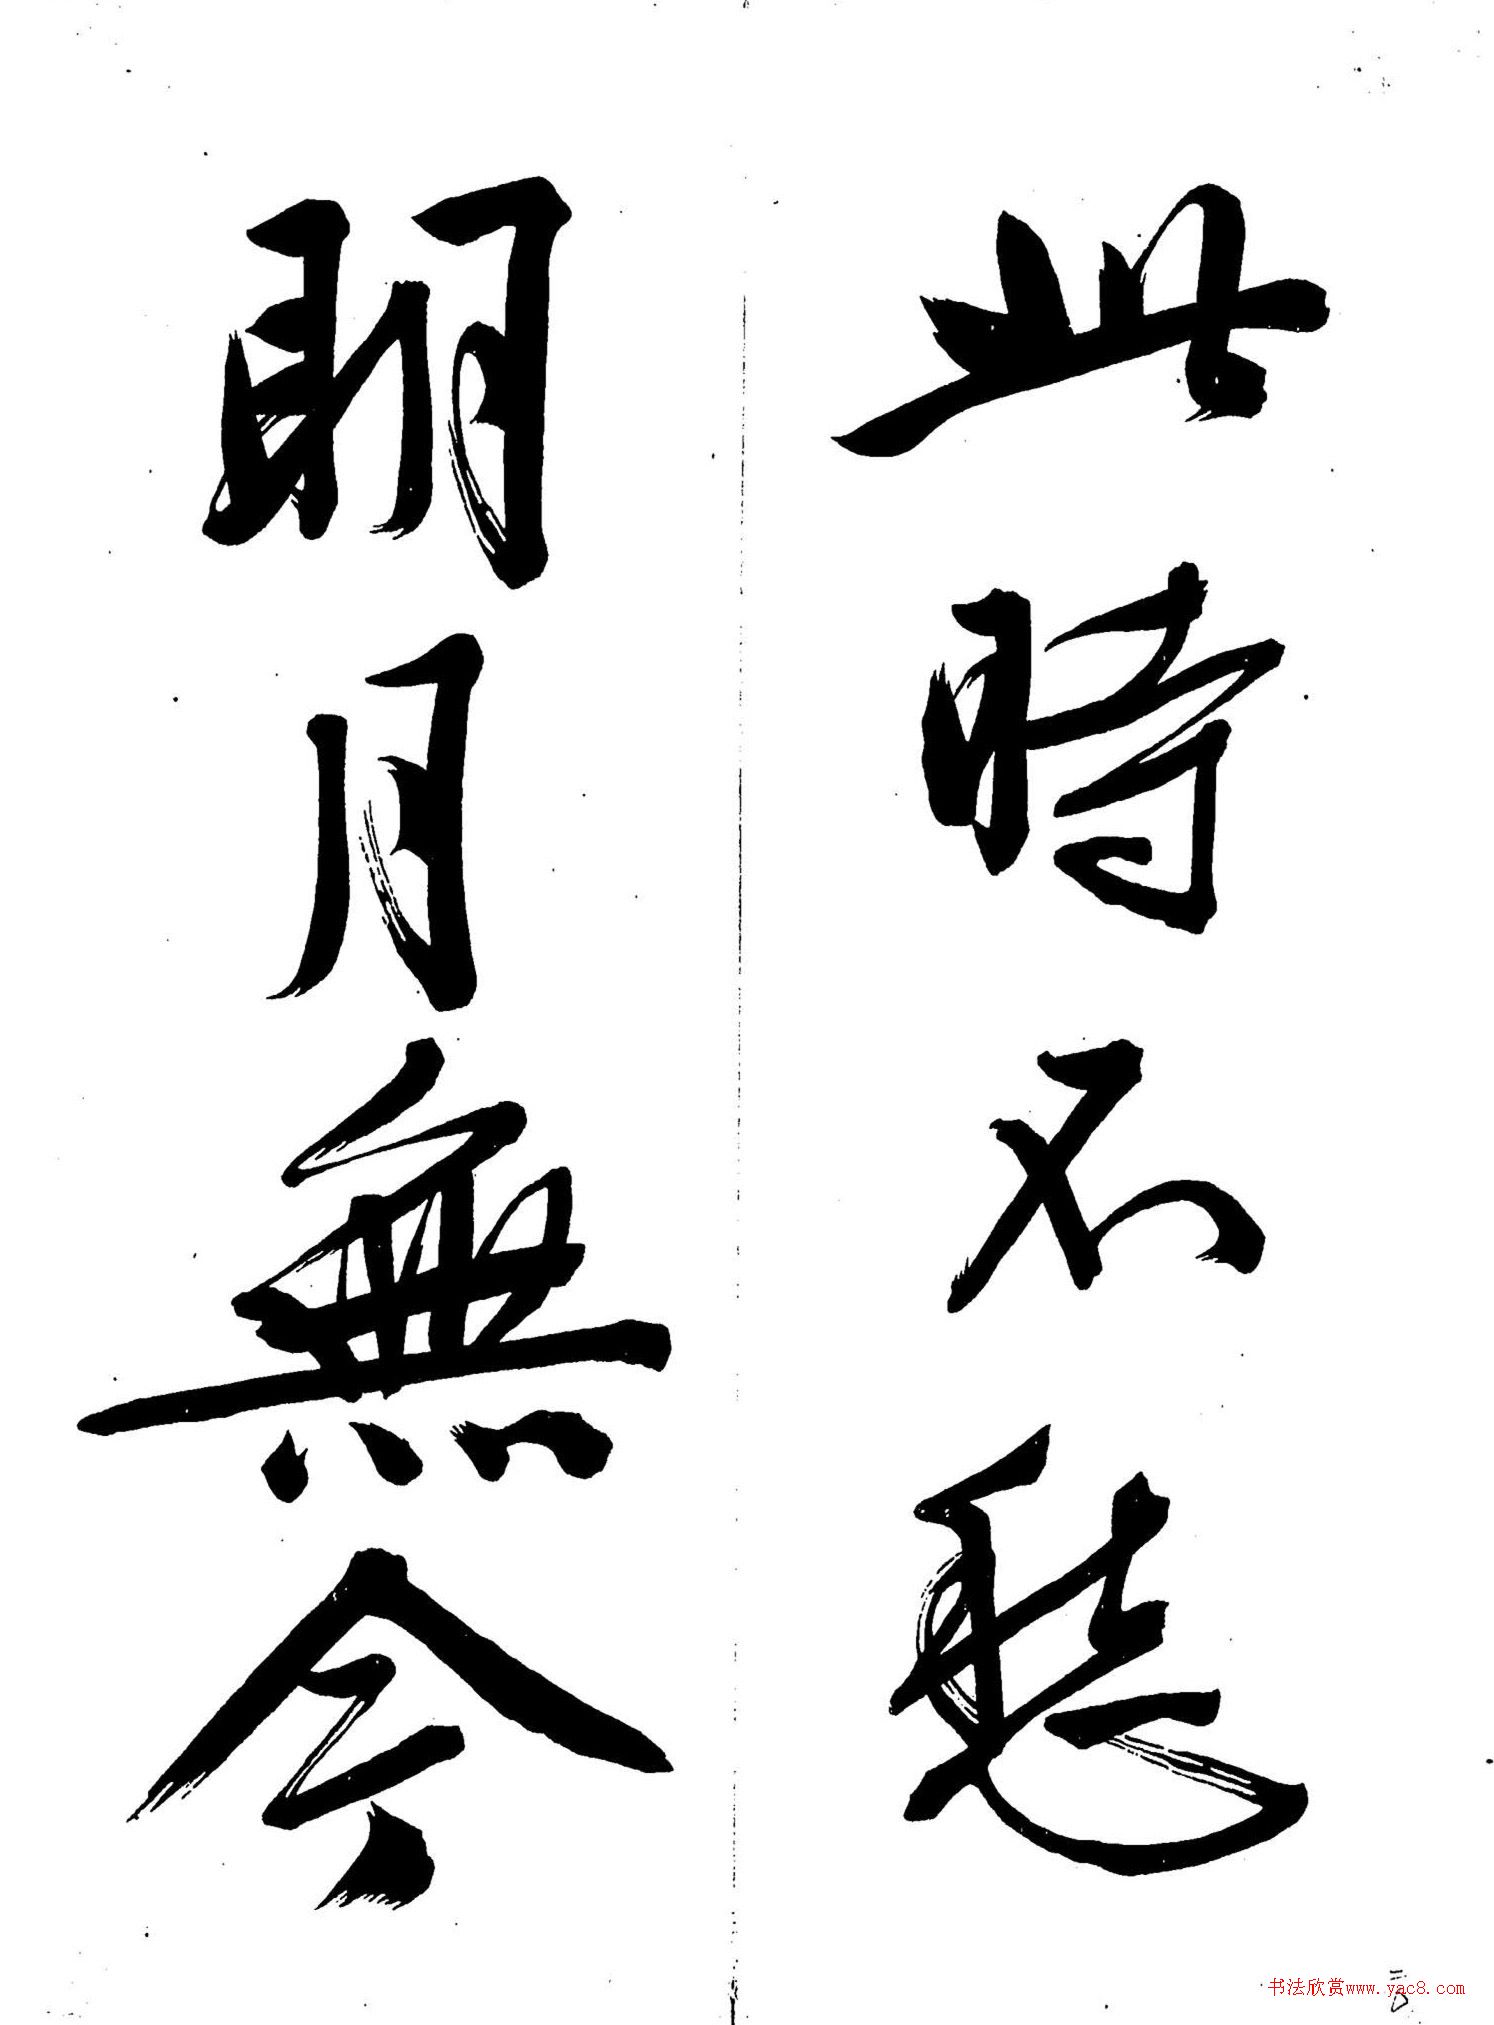 此時不愁
明月無今
书法欣赏www.yac8.com